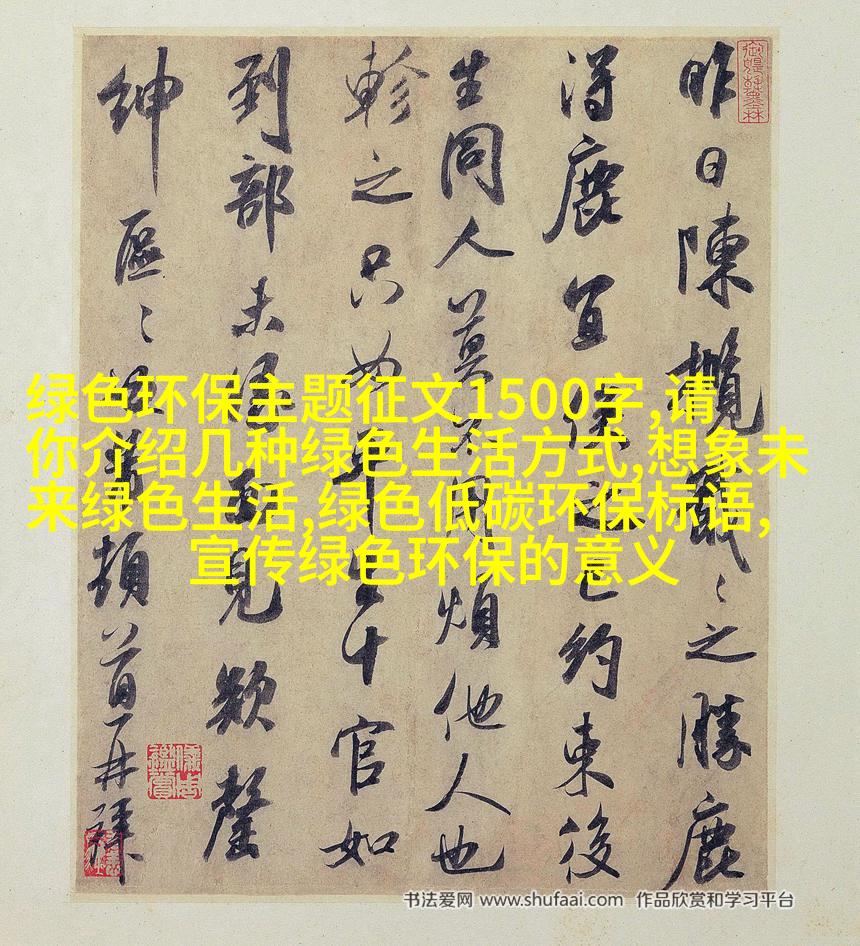 昨日陳攬戢〻之勝鹿
得鹿宜俟之已約束後
生同人莫煩他人也
軫之只如平生十官如
到部未緣面見欵罄
紳區〻頓首再拜
绿色环保主题征文1500字,请
你介绍几种绿色生活方式,想象未
来绿色生活,绿色低碳环保标语,
宣传绿色环保的意义
书法爱网 www.shufaai.com 作品欣赏和学习平台